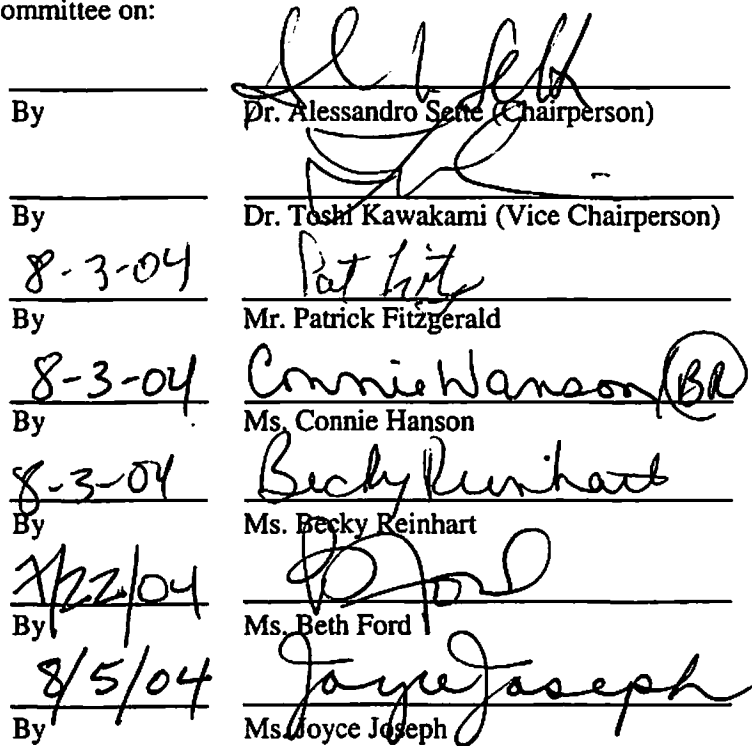 ommittee on:
By Dr. Alessandro Sette (Chairperson)
By Dr. Toshi Kawakami (Vice Chairperson)
8-3-04 Pat Fitz
By Mr. Patrick Fitzgerald
8-3-04 Connie Hanson (BR)
By Ms. Connie Hanson
8-3-04 Becky Reinhart
By Ms. Becky Reinhart
7/22/04 B Ford
By Ms. Beth Ford
8/5/04 Joyce Joseph
By Ms. Joyce Joseph